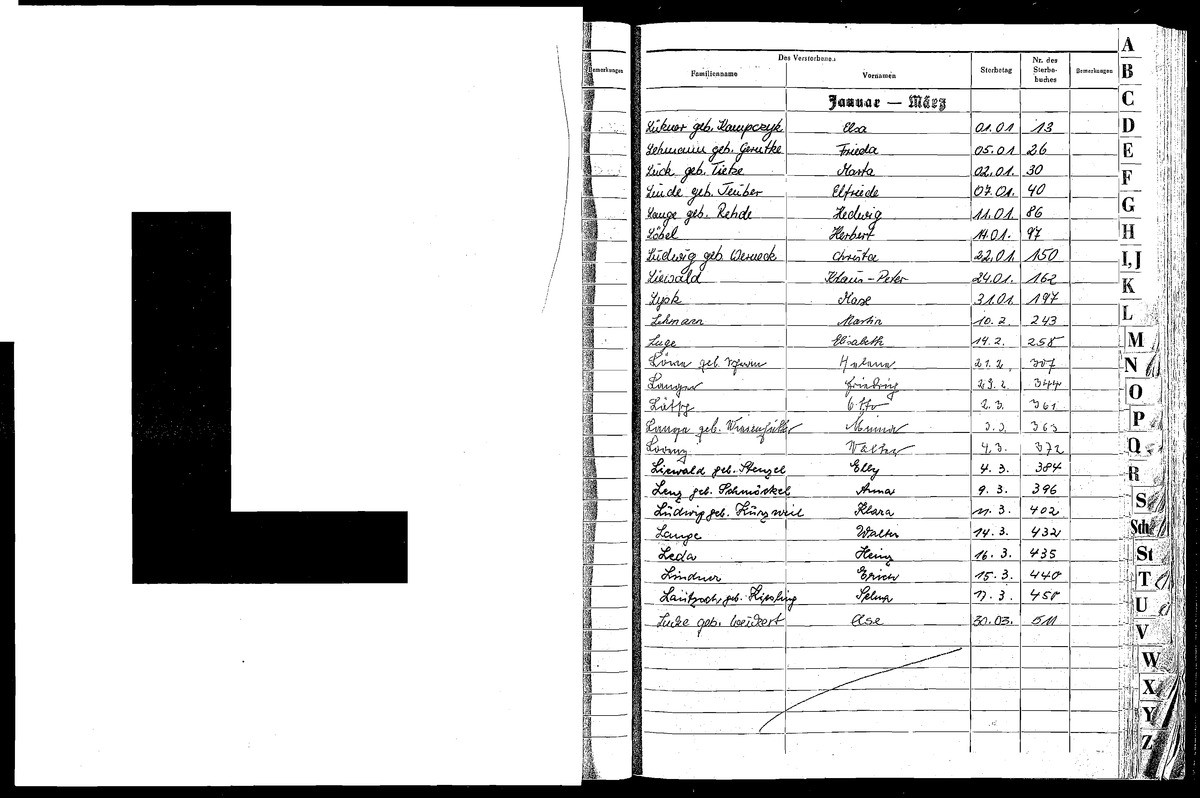 L
Bemerkungen
Des Verstorbenen
Familienname Vornamen Sterbetag Nr. des Sterbe-buches Bemerkungen
Januar — März
geb. Kampczyk Elsa 01.01 13
Lehmann geb. Gerutke Frieda 05.01 26
Lück geb. Tietze Marta 02.01. 30
Linde geb. Teuber Elfriede 07.01. 40
Lange geb. Rehde Hedwig 11.01 86
Löbel Herbert 14.01. 97
Ludwig geb. Werneck Christa 22.01. 150
Liewald Klaus-Peter 24.01. 162
31.01. 197
Lehmann Martin 10.2. 243
Luge Elisabeth 14.2. 258
geb. Helene 21.2. 307
Langer Friedrich 344
Otto 2.3. 361
Lange geb. Minna 3.3. 363
Lorenz Walter 4.3. 372
Liewald geb. Stenzel Elly 4.3. 384
Lenz geb. Schmöckel Anna 9.3. 396
Ludwig geb. Kurzweil Klara 11.3. 402
Lange Walter 14.3. 432
Leda Heinz 16.3. 435
Lindner Erich 15.3. 440
geb. Kiesling 17.3. 450
geb. Else 30.03. 511
A
B
C
D
E
F
G
H
I,J
K
L
M
N
O
P
Q
R
S
Sch
St
T
U
V
W
X
Y
Z